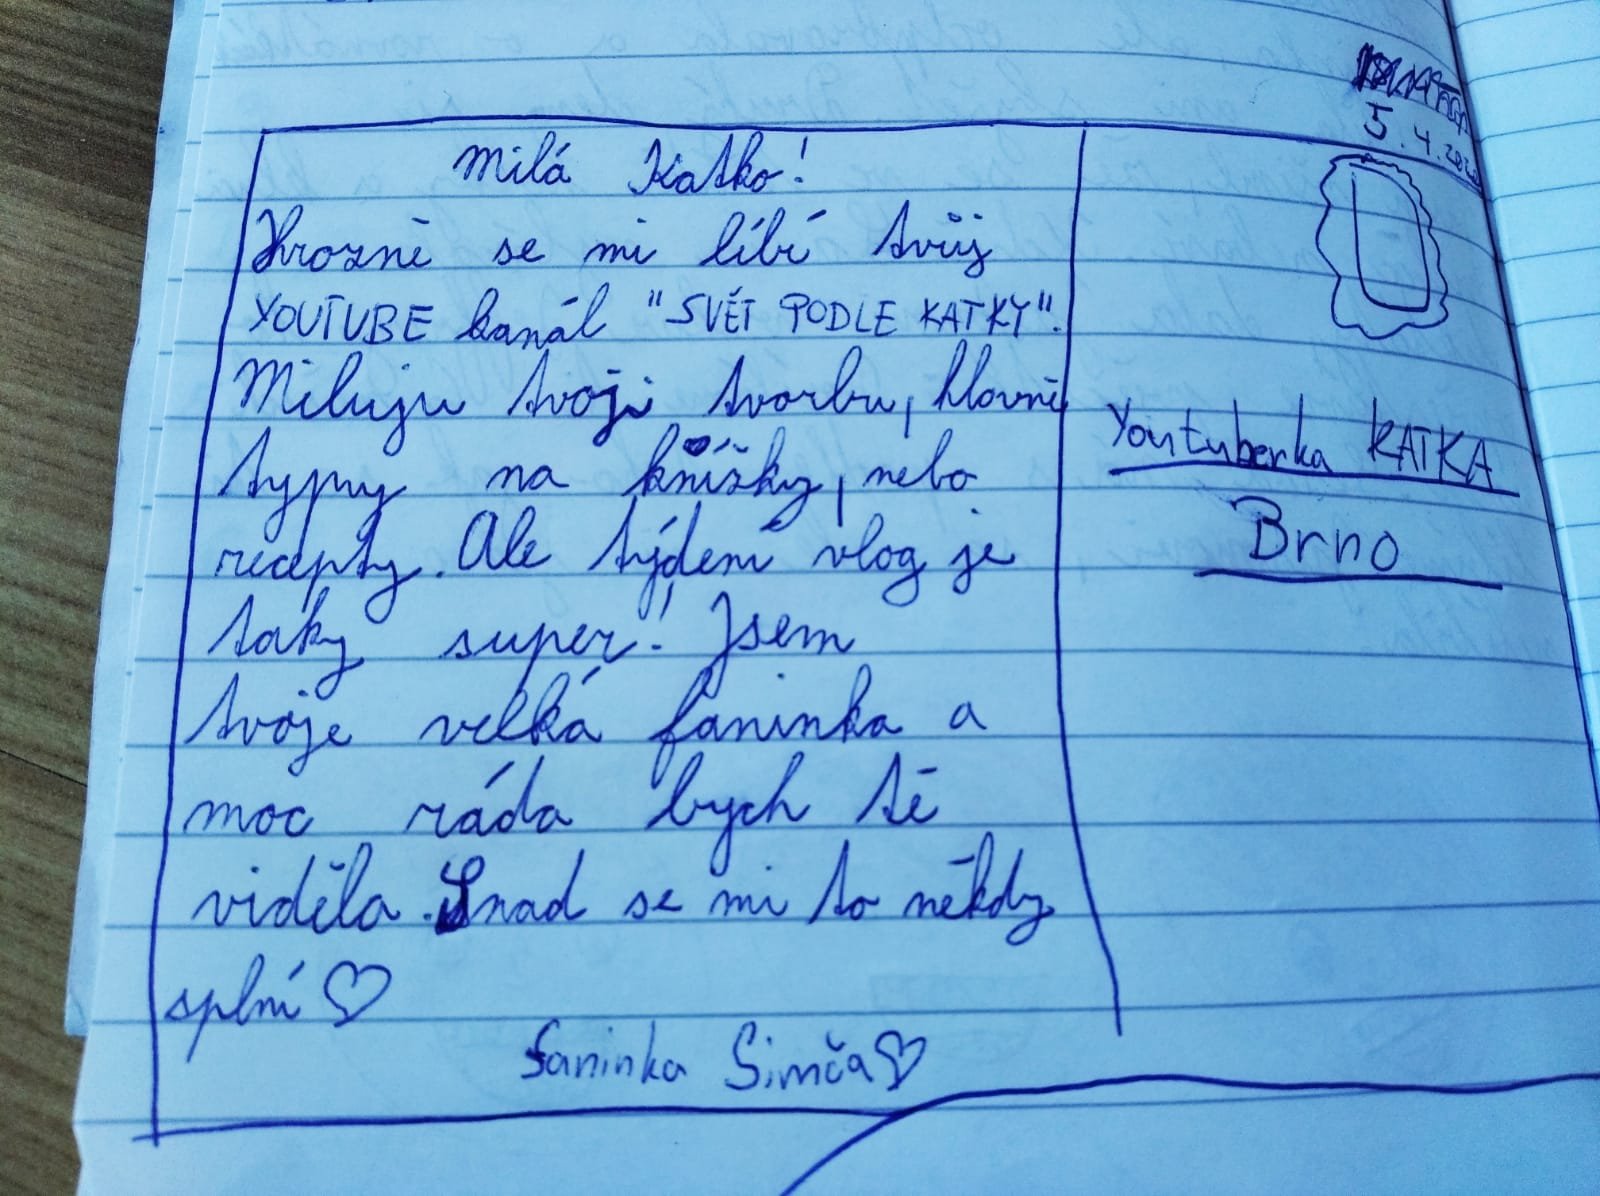 Milá Katko!
Hrozně se mi líbí tvůj
YOUTUBE kanál "SVĚT PODLE KATKY".
Miluju tvoji tvorbu, hlavně
typy na knížky, nebo
recepty. Ale týdení vlog je
taky super! Jsem
tvoje velká faninka a
moc ráda bych tě
viděla. Snad se mi to někdy
splní ♡
faninka Simča ♡
5.4.2020
Youtuberka KATKA
Brno